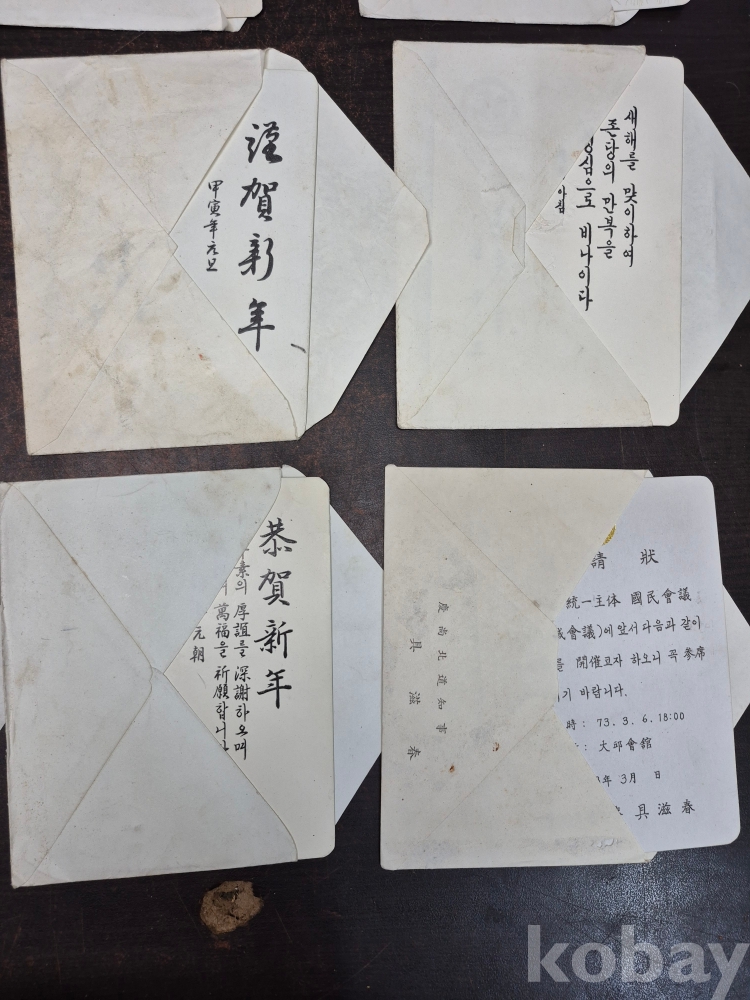 謹賀新年
甲寅年元旦
새해를 맞이하여
존당의 만복을
성심으로 비나이다
아침
恭賀新年
素의 厚誼를 深謝하오며
萬福을 祈願합니다
元朝
慶尚北道知事
具滋春
請 狀
統一主体 國民會議
會議)에 앞서 다음과 같이
를 開催코자 하오니 꼭 參席
기 바랍니다.
時: 73. 3. 6. 18:00
: 大邱會舘
年 3月 日
具滋春
kobay